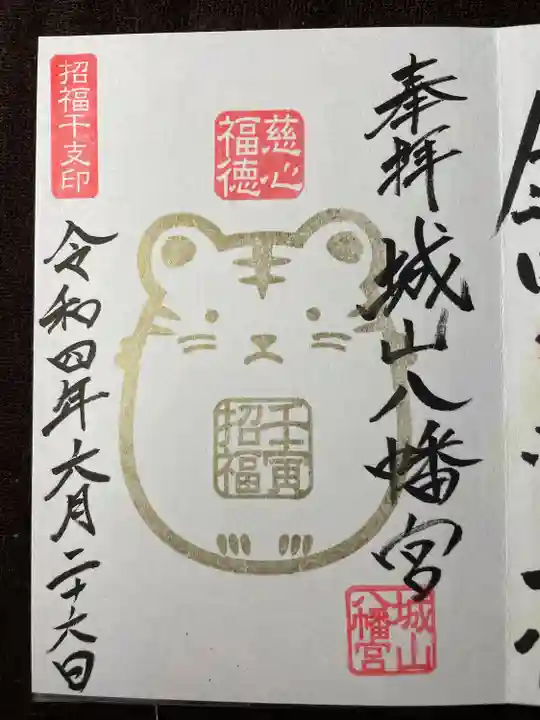 奉拝 城山八幡宮
城山八幡宮
慈心福徳
壬寅招福
招福干支印
令和四年六月二十六日